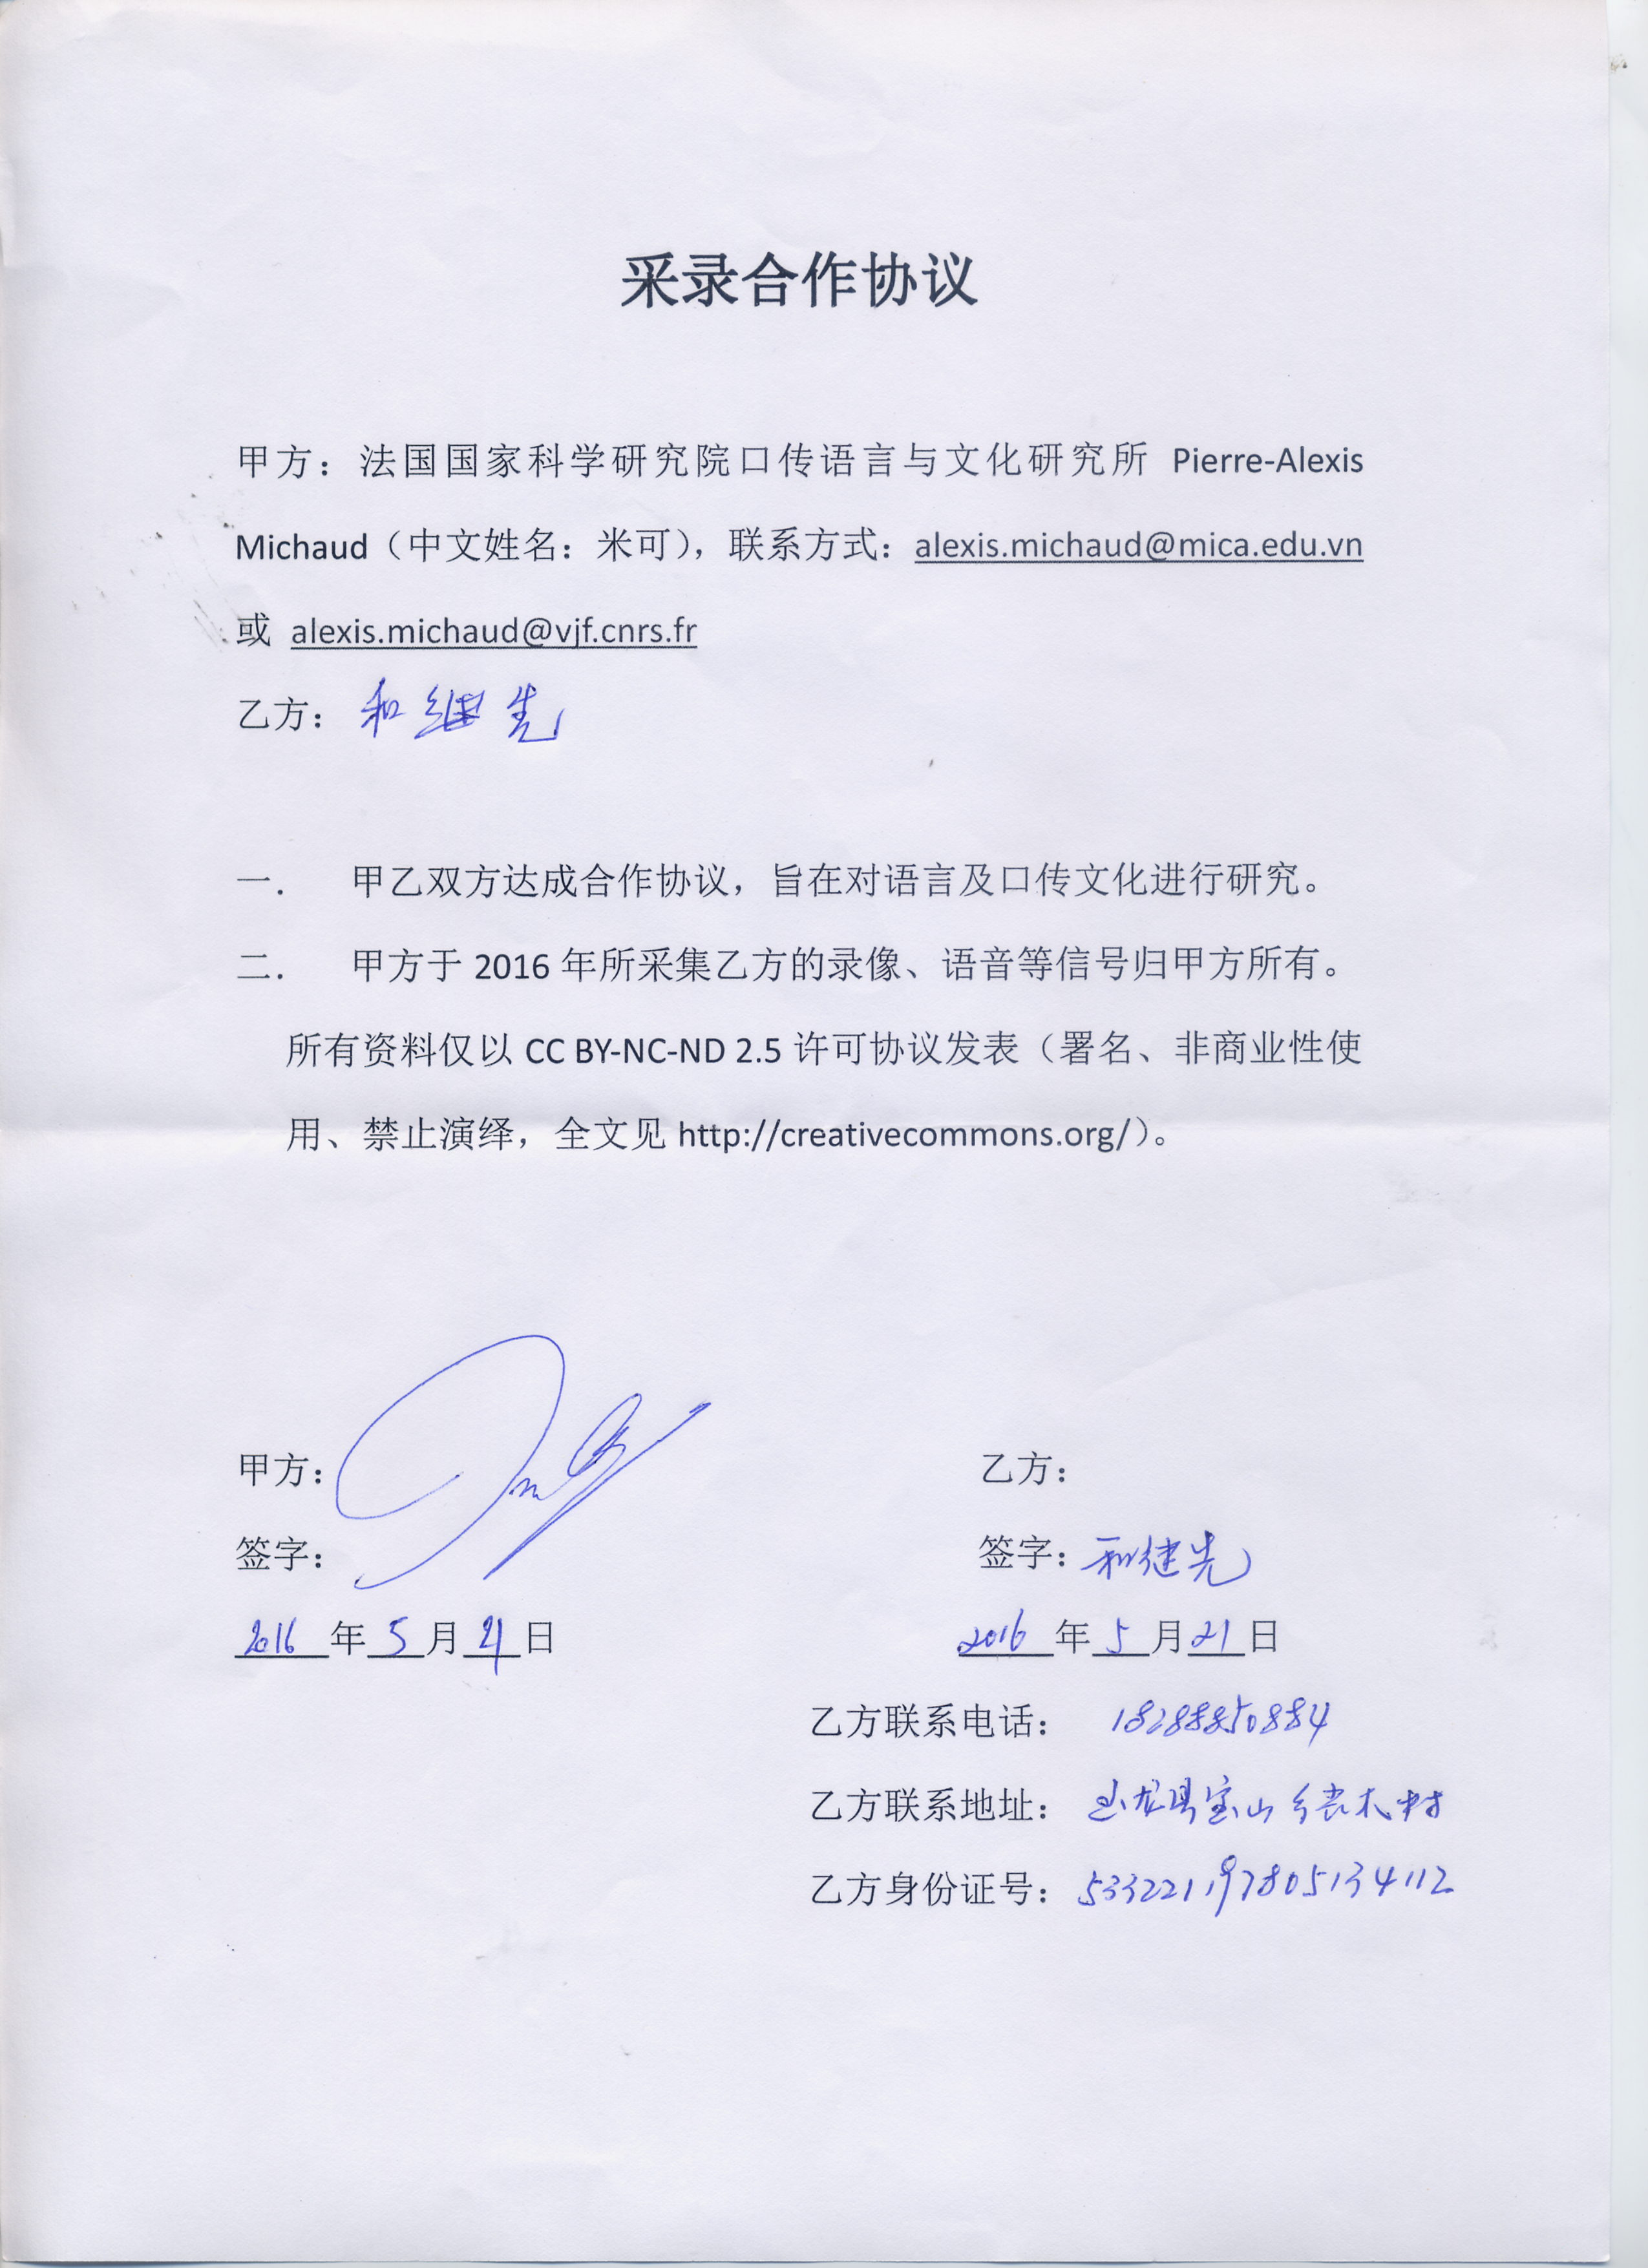 采录合作协议
甲方：法国国家科学研究院口传语言与文化研究所 Pierre-Alexis
Michaud（中文姓名：米可），联系方式：alexis.michaud@mica.edu.vn
或 alexis.michaud@vjf.cnrs.fr
乙方：和继先
一． 甲乙双方达成合作协议，旨在对语言及口传文化进行研究。
二． 甲方于 2016 年所采集乙方的录像、语音等信号归甲方所有。
所有资料仅以 CC BY-NC-ND 2.5 许可协议发表（署名、非商业性使
用、禁止演绎，全文见 http://creativecommons.org/）。
甲方： 乙方：
签字： 签字：和继先
2016 年 5 月 21 日 2016 年 5 月 21 日
乙方联系电话： 18288850884
乙方联系地址： 玉龙县宝山乡 木村
乙方身份证号：533221197805134112